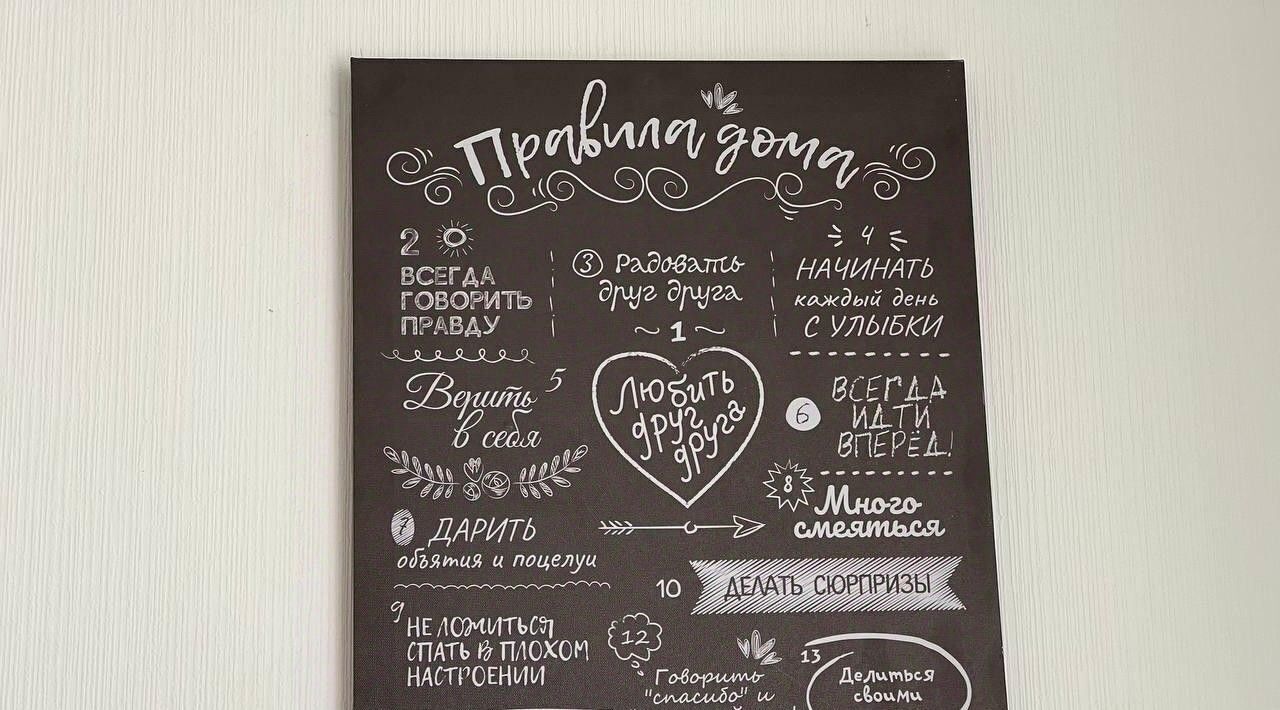 Правила дома
2
ВСЕГДА
ГОВОРИТЬ
ПРАВДУ
3 Радовать
друг друга
4
НАЧИНАТЬ
каждый день
С УЛЫБКИ
1
Любить
друг
друга
Верить 5
в себя
6
ВСЕГДА
ИДТИ
ВПЕРЁД!
7 ДАРИТЬ
объятия и поцелуи
8
Много
смеяться
10 ДЕЛАТЬ СЮРПРИЗЫ
9
НЕ ЛОЖИТЬСЯ
СПАТЬ В ПЛОХОМ
НАСТРОЕНИИ
12
Говорить
"спасибо" и
13
Делиться
своими